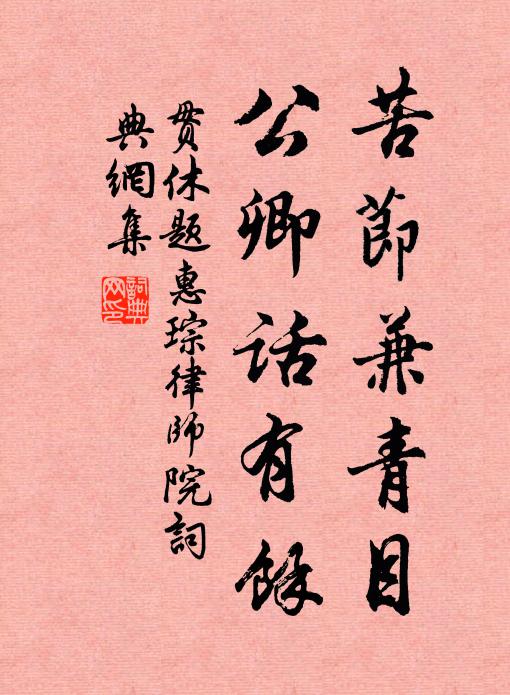 苦節兼青目
公卿話有餘
貫休題惠琮律師院詞
典網集
詞典網印